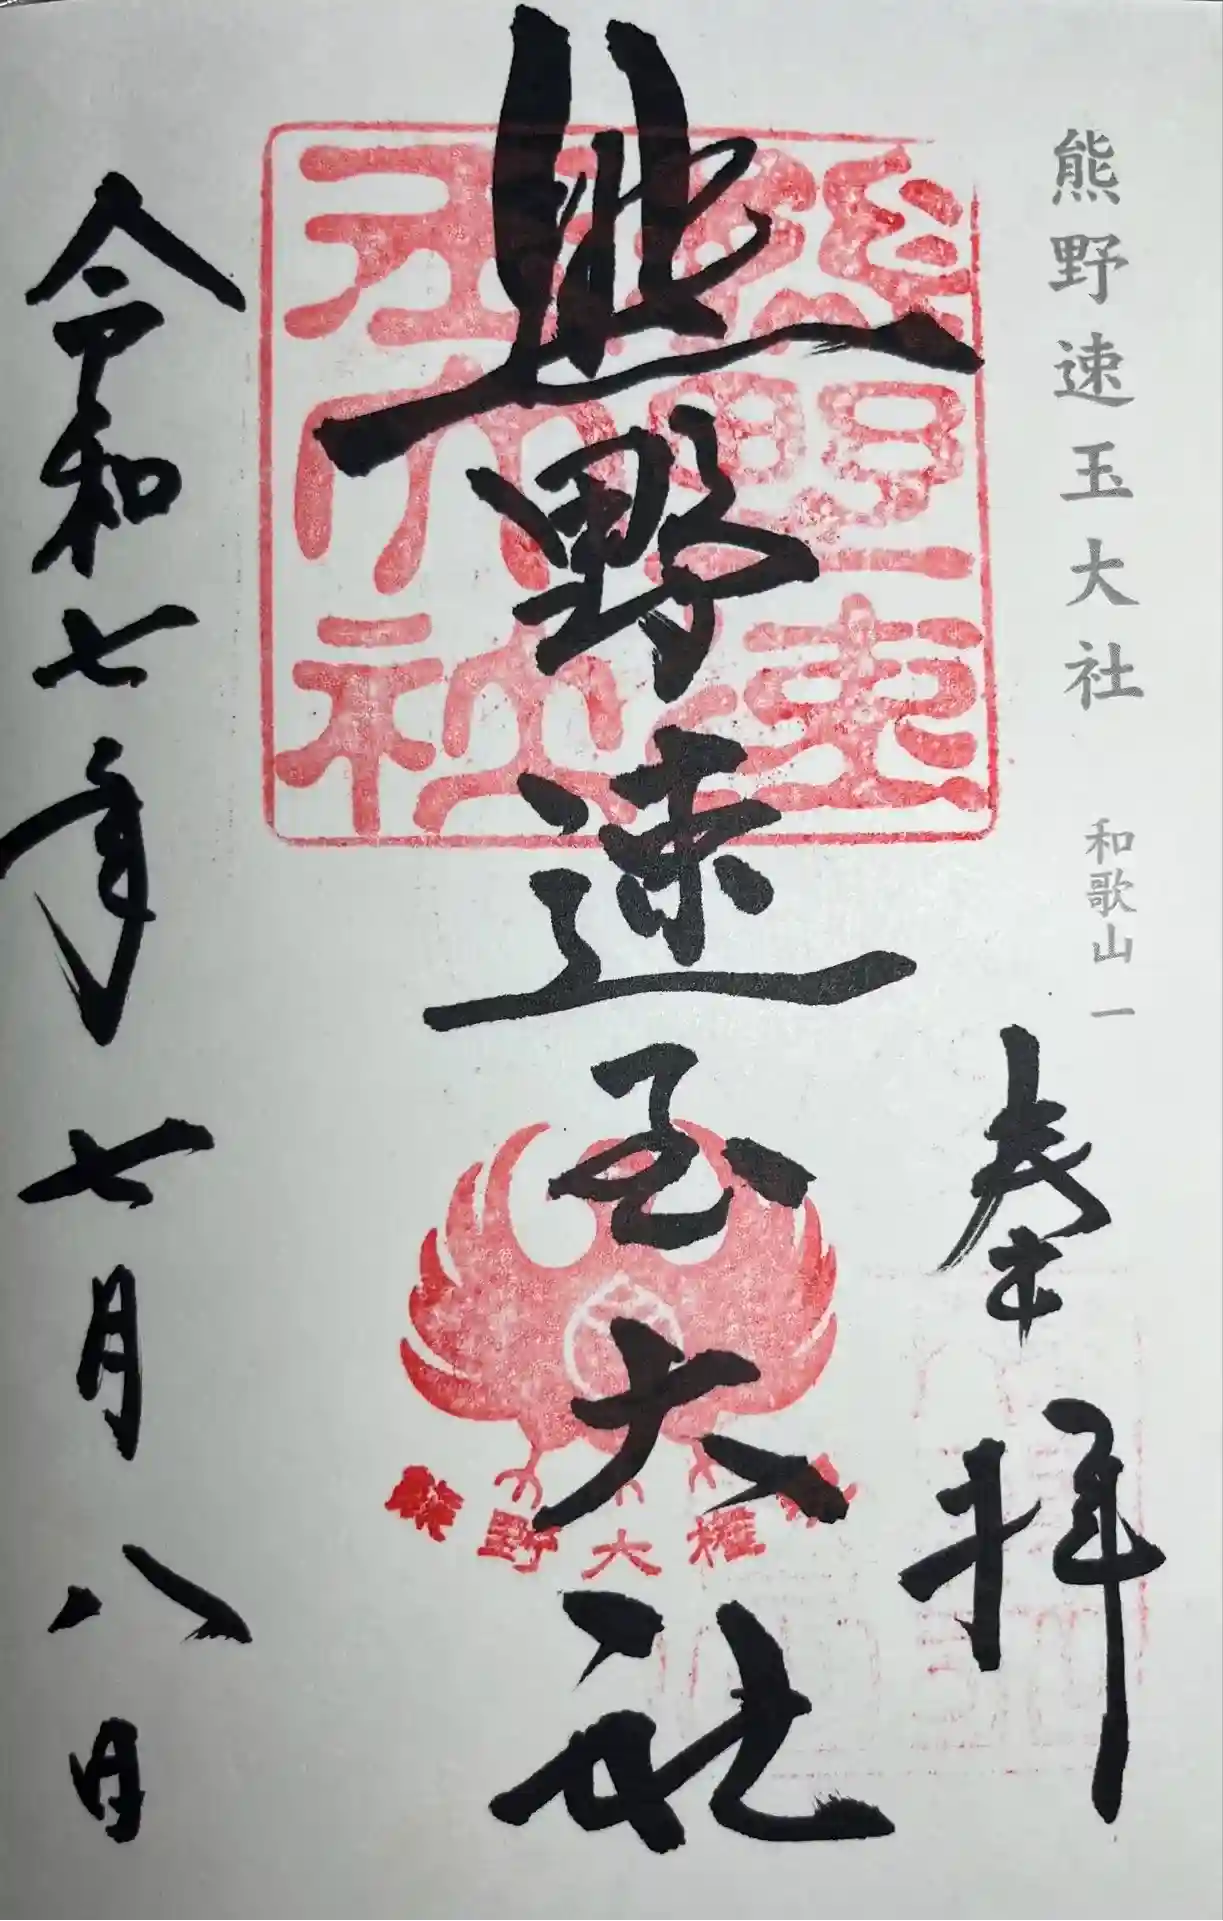 熊野速玉大社 和歌山 一
奉拝
熊野速玉大社
熊野速玉大社
熊野大権現
令和七年七月八日